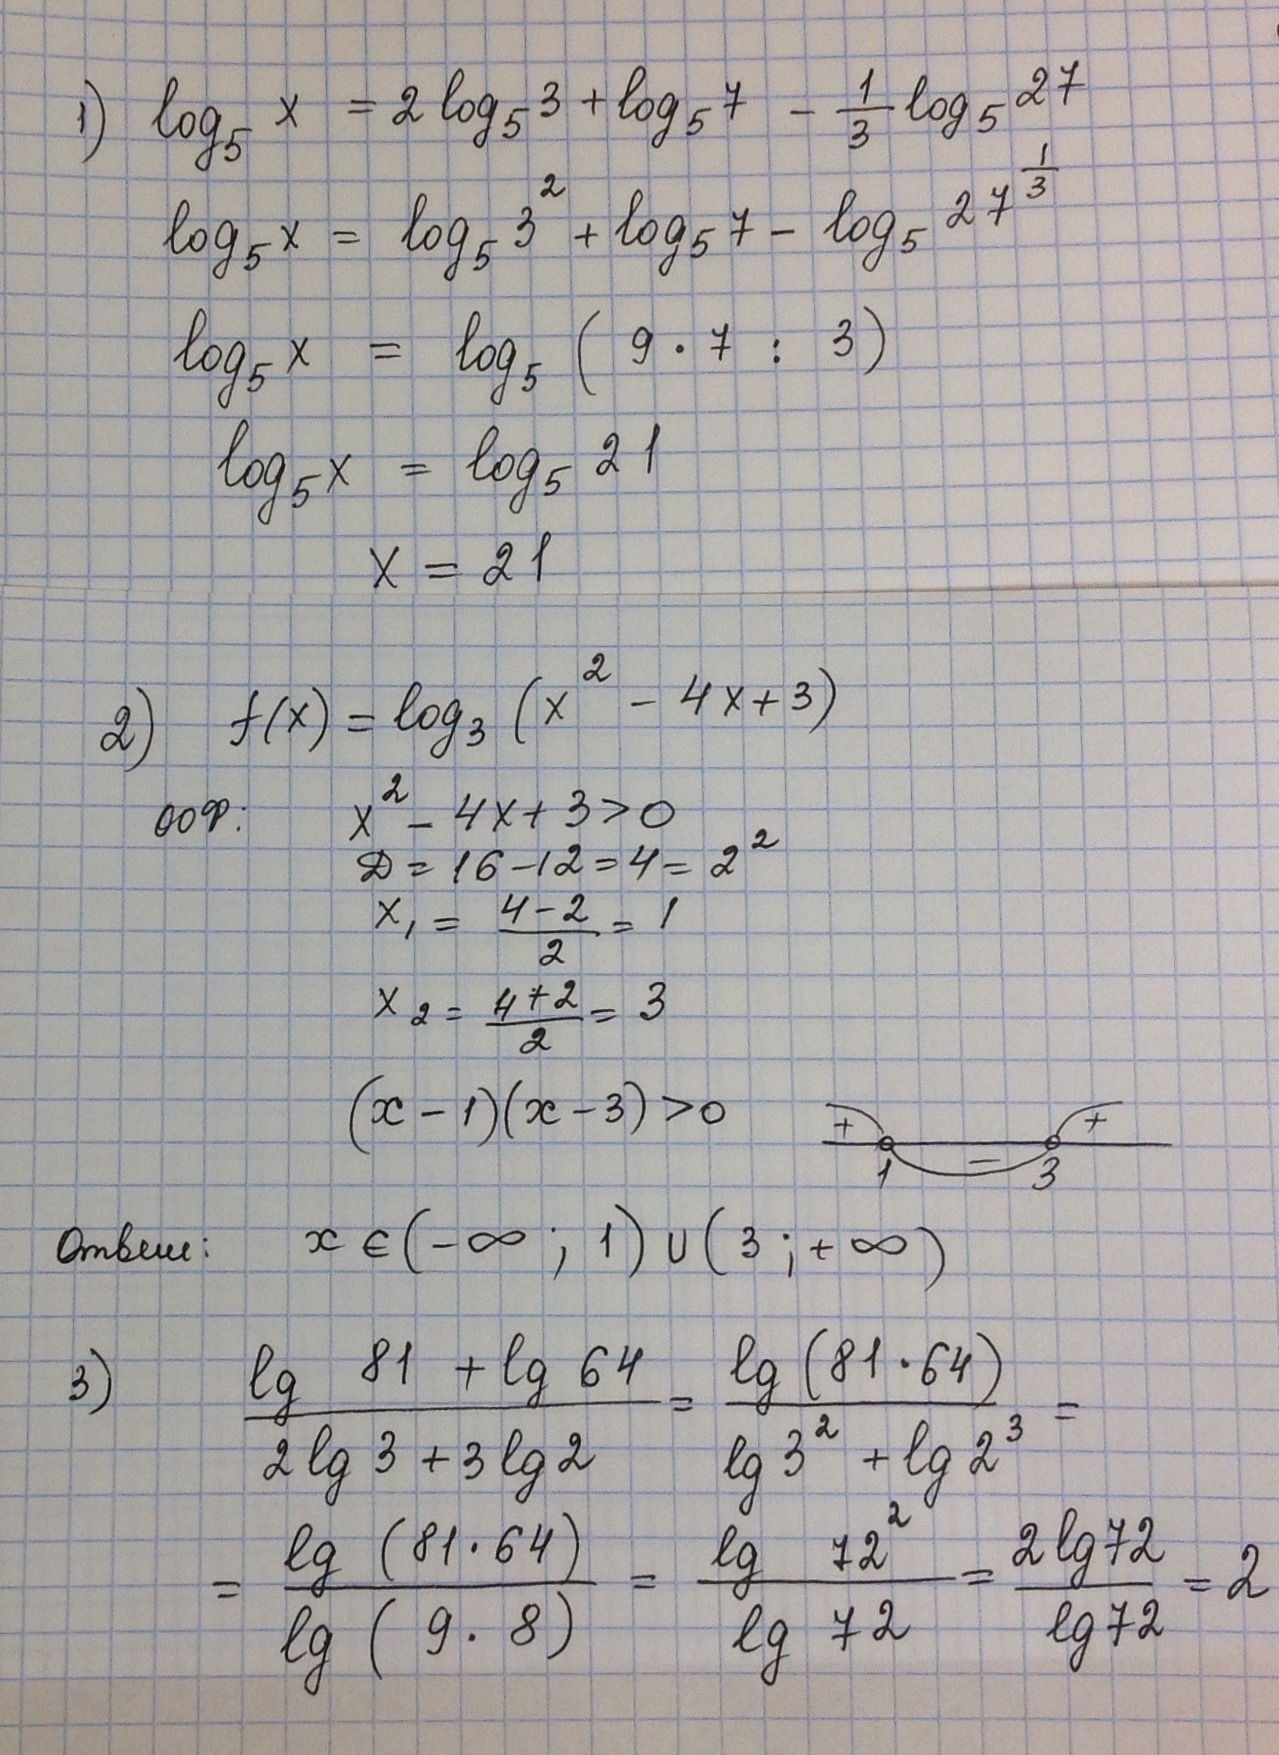 1) log₅ x = 2 log₅ 3 + log₅ 7 - 1/3 log₅ 27
log₅ x = log₅ 3² + log₅ 7 - log₅ 27^(1/3)
log₅ x = log₅ (9 · 7 : 3)
log₅ x = log₅ 21
x = 21
2) f(x) = log₃ (x² - 4x + 3)
ООФ: x² - 4x + 3 > 0
Д = 16 - 12 = 4 = 2²
x₁ = (4 - 2)/2 = 1
x₂ = (4 + 2)/2 = 3
(x - 1)(x - 3) > 0
+ - +
1 3
Ответ: x ∈ (-∞ ; 1) ∪ (3 ; +∞)
3) (lg 81 + lg 64)/(2 lg 3 + 3 lg 2) = lg (81 · 64)/(lg 3² + lg 2³) =
= lg (81 · 64)/lg (9 · 8) = lg 72²/lg 72 = 2 lg 72/lg 72 = 2